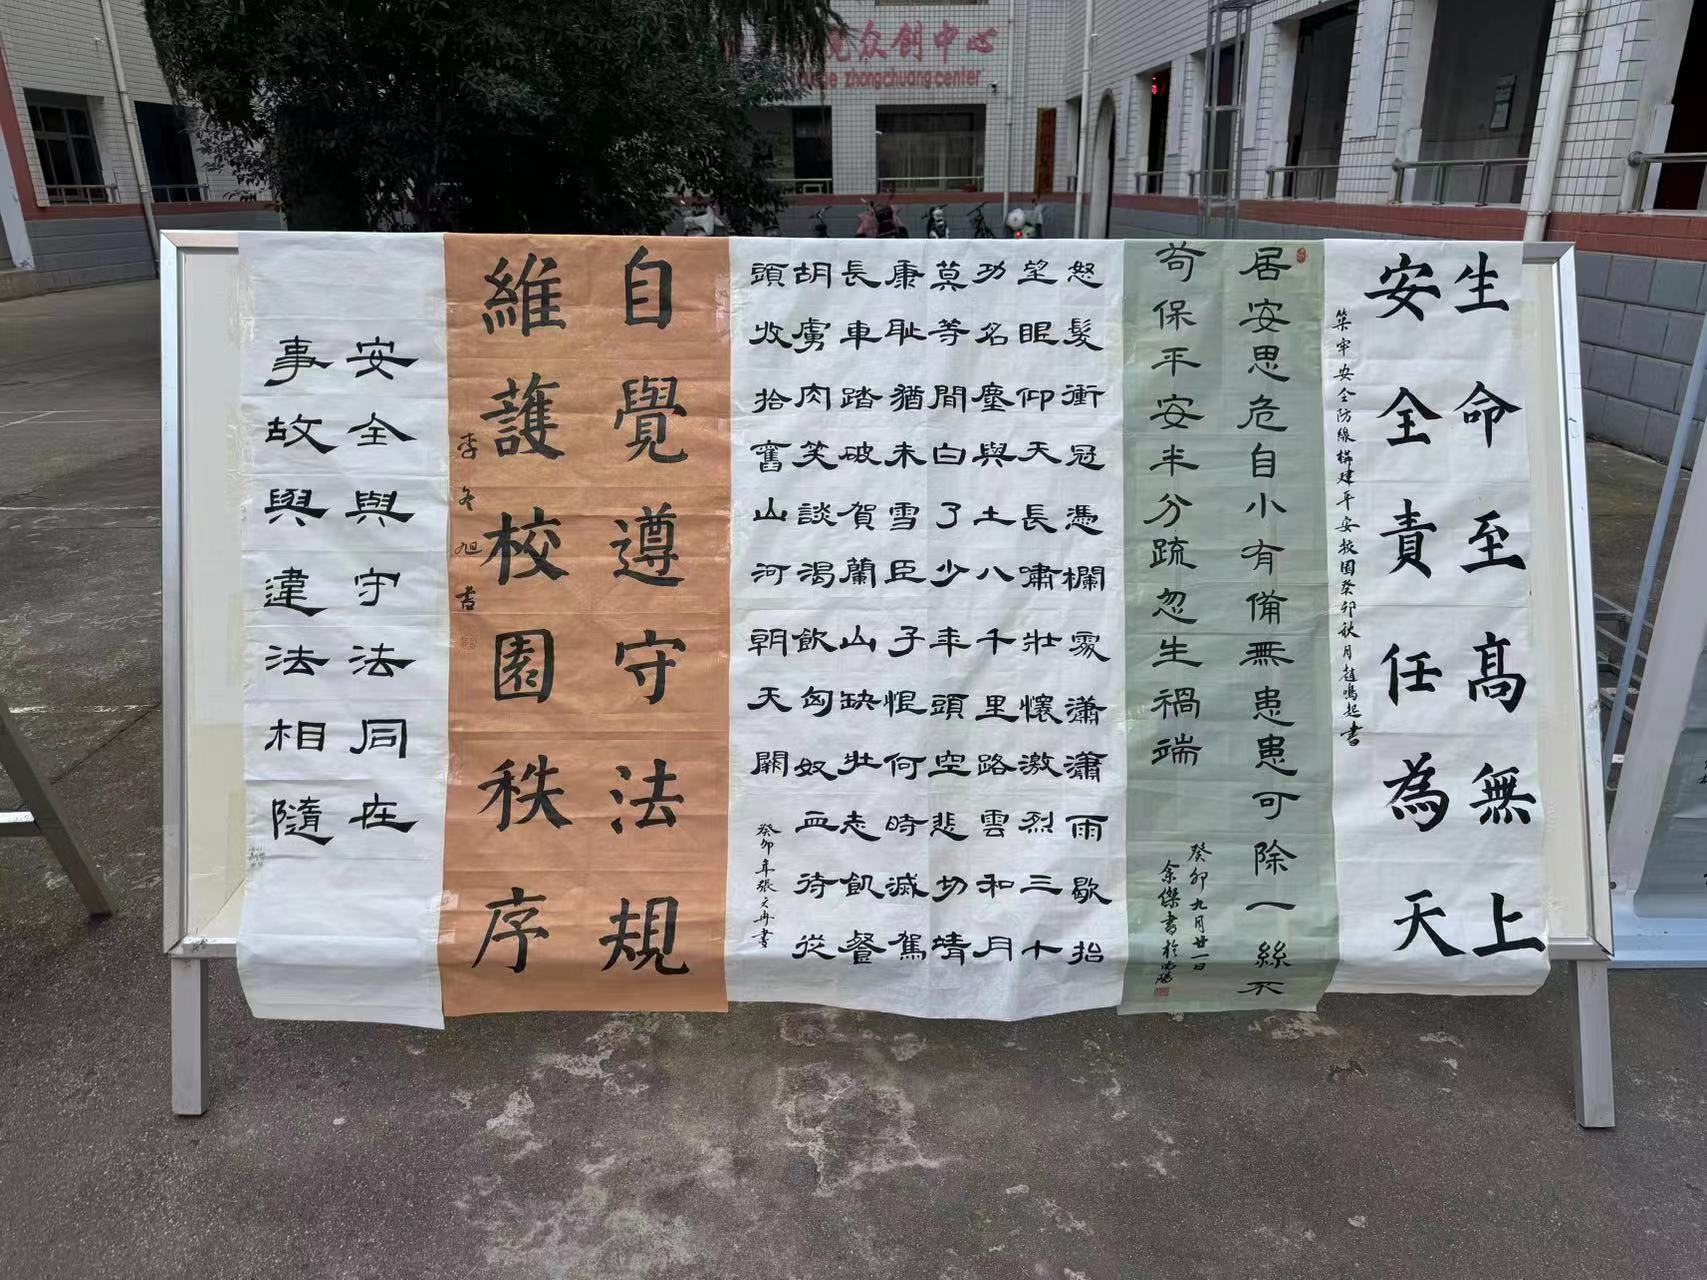 众创中心
zhongchuang center
生命至高無上
安全責任為天
築牢安全防線構建平安校園癸卯秋月趙鳴起書
居安思危自小有備無患患可除一絲不
苟保平安半分疏忽生禍端
癸卯九月廿一日
余傑書於
怒髮衝冠憑欄處瀟瀟雨歇抬
望眼仰天長嘯壯懷激烈三十
功名塵與土八千里路雲和月
莫等間白了少年頭空悲切靖
康耻猶未雪臣子恨何時滅駕
長車踏破賀蘭山缺壯志飢餐
胡虜肉笑談渴飲匈奴血待從
頭收拾舊山河朝天闕
癸卯年張文冉書
自覺遵守法規
維護校園秩序
李冬旭書
安全與守法同在
事故與違法相隨